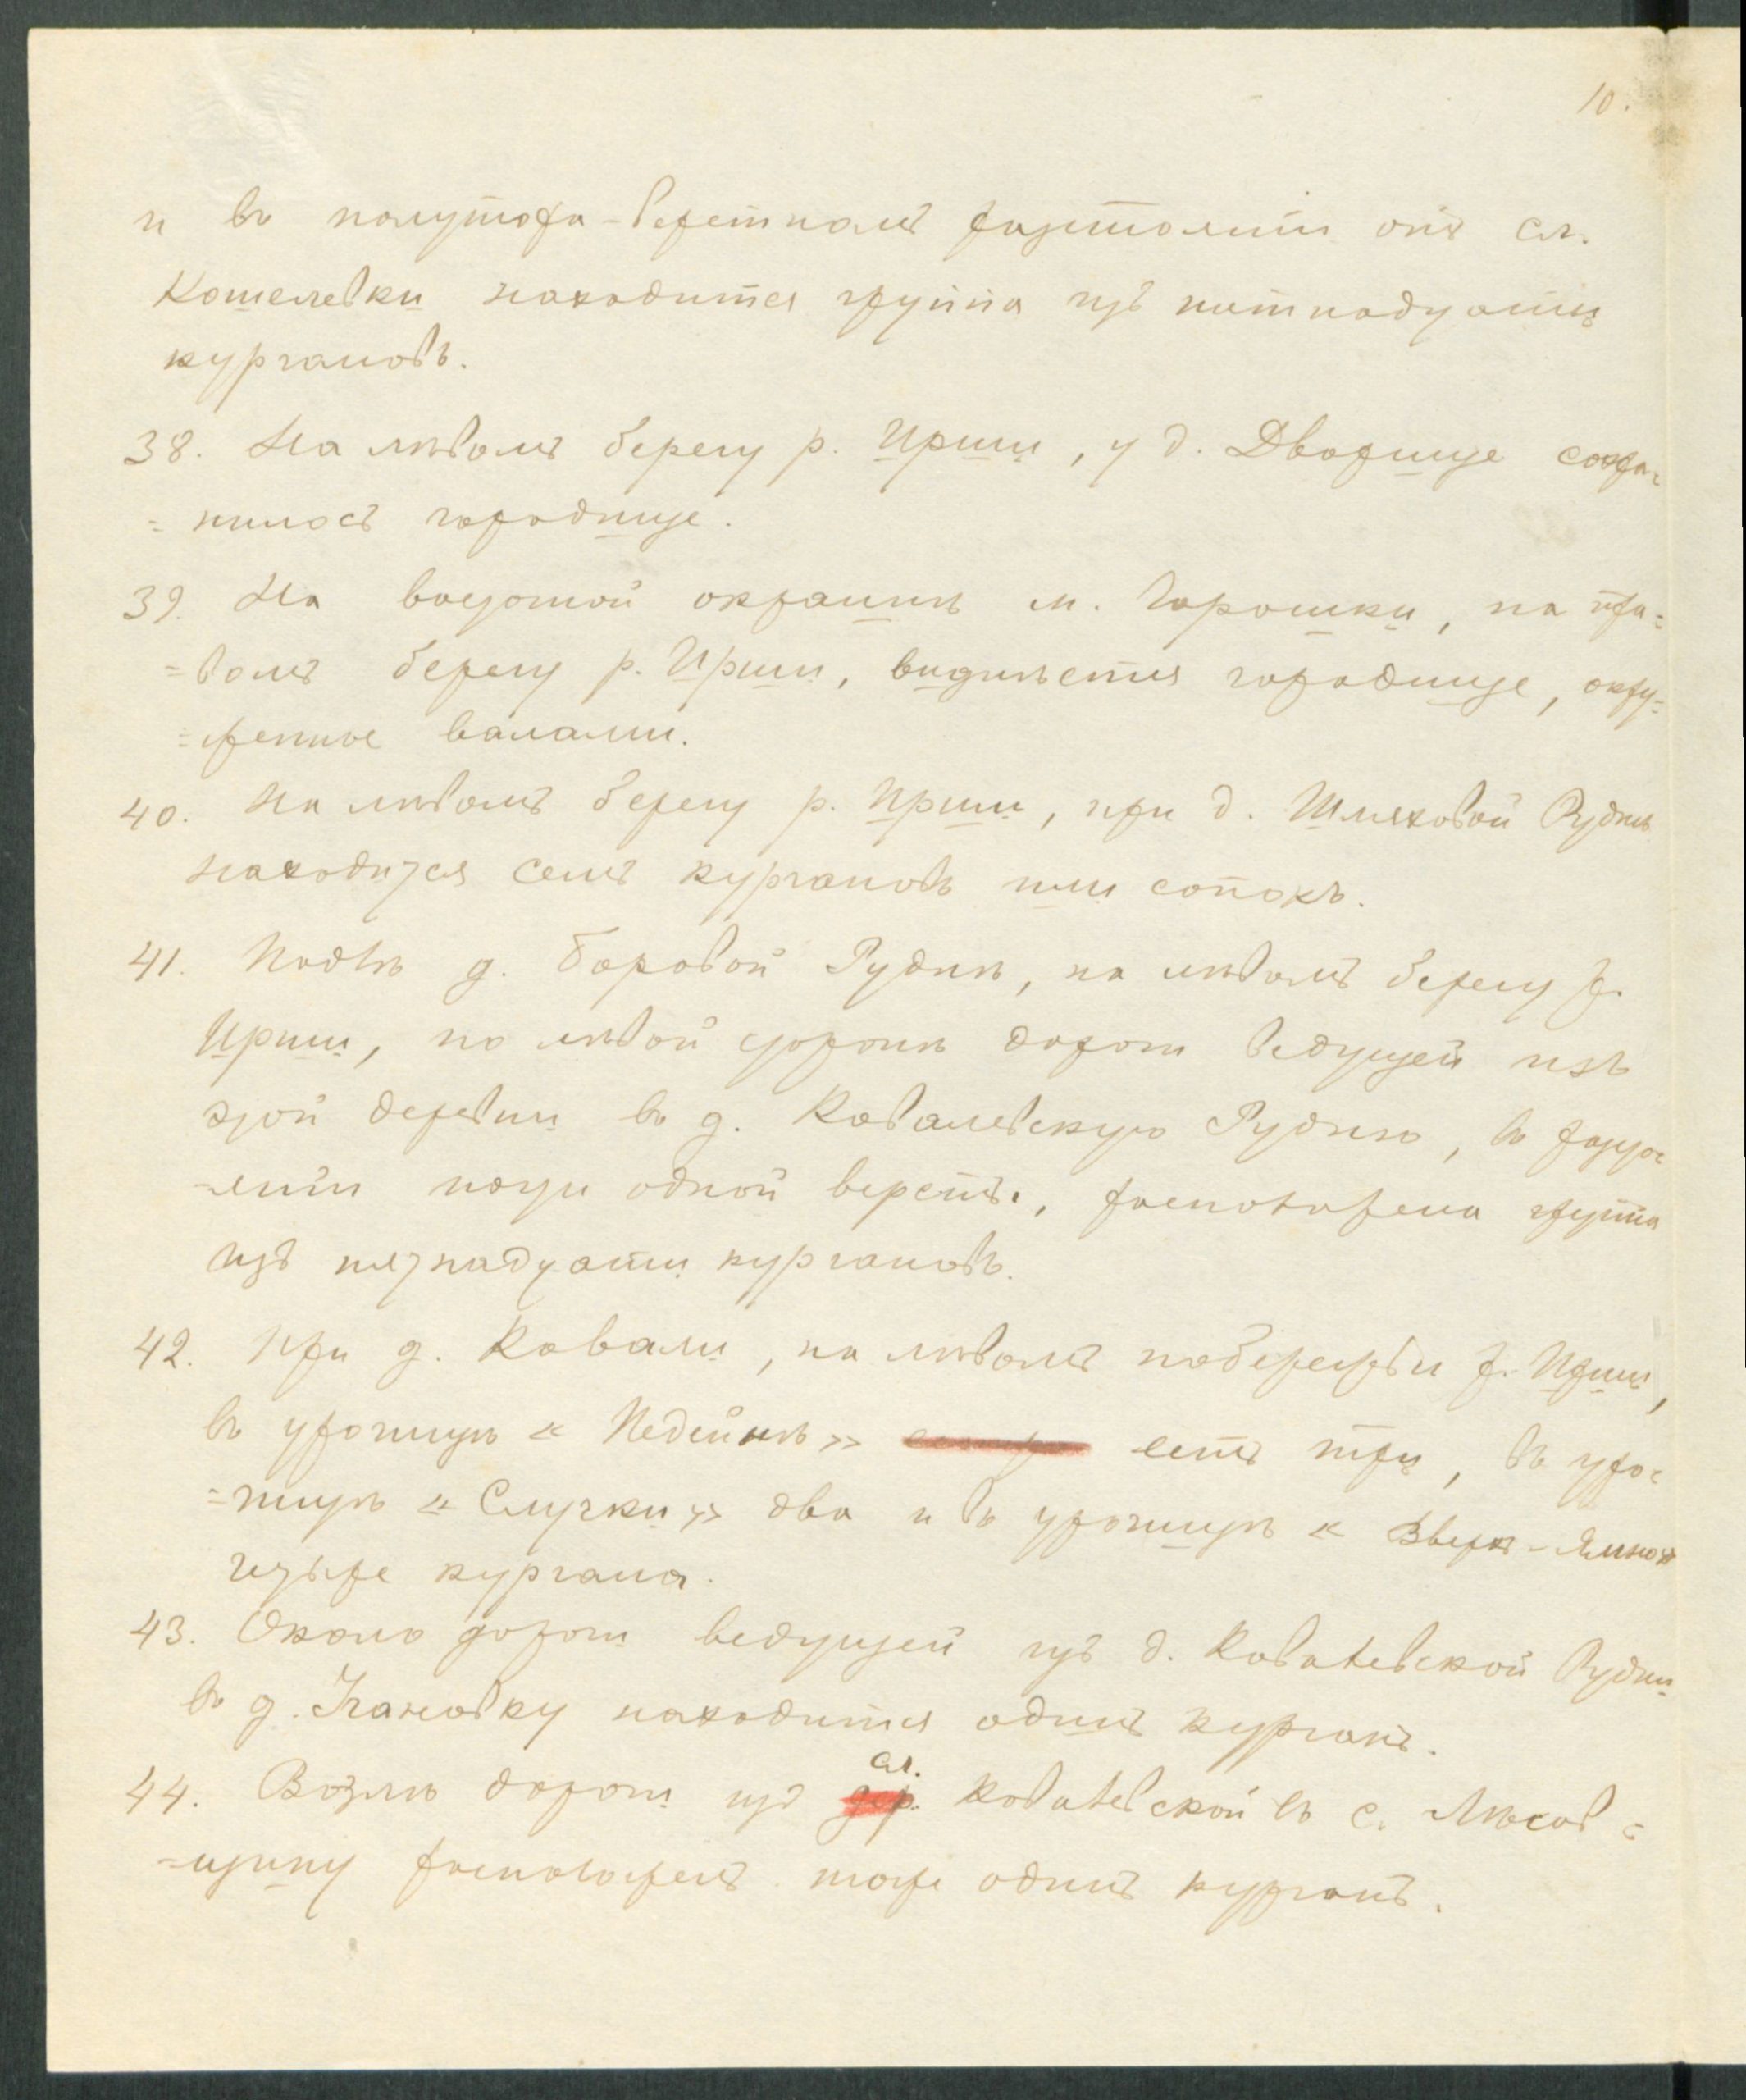 10.
и въ полутора-верстномъ разстоянiи отъ сл.
Кошелевки находится группа изъ пятнадцати
кургановъ.
38. На лѣвомъ берегу р. Ирши, у д. Дворище сохра-
=нилось городище.
39. На восточной окраинѣ м. Горошки, на пра=
=вомъ берегу р. Ирши, виднѣется городище, окру=
=женное валами.
40. На лѣвомъ берегу р. Ирши, при д. Шляховой Руднѣ
находится семь кургановъ или сопокъ.
41. Подлѣ д. Боровой Рудни, на лѣвомъ берегу р.
Ирши, по лѣвой сторонѣ дороги ведущей изъ
этой деревни въ д. Ковалевскую Рудню, въ разсто=
-янiи почти одной версты, расположена группа
изъ пятнадцати кургановъ.
42. При д. Ковали, на лѣвомъ побережьи р. Ирши,
въ урочищѣ « » есть три, въ уро=
=чищѣ « Случки » два и въ урочищѣ «
четыре кургана.
43. Около дороги ведущей изъ д. Ковалевской Рудни
въ д. находится одинъ курганъ.
44. Возлѣ дороги изъ дер. сл. Ковалевской въ с. Лѣсов=
=щину расположенъ тоже одинъ курганъ.